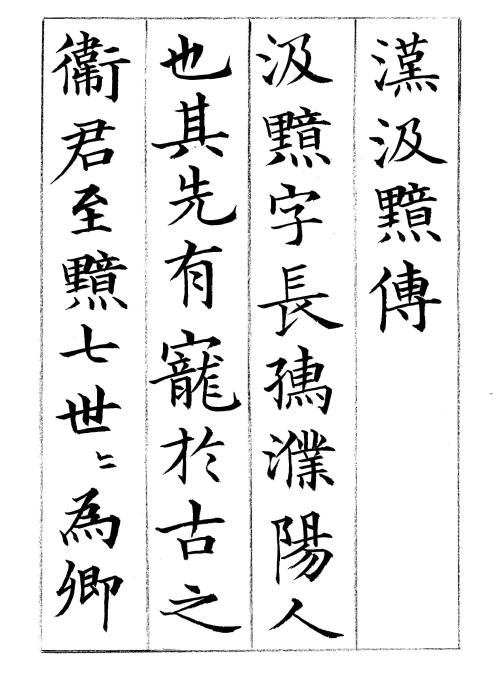 漢汲黯傳
汲黯字長孺濮陽人
也其先有寵於古之
衞君至黯七世〻為卿